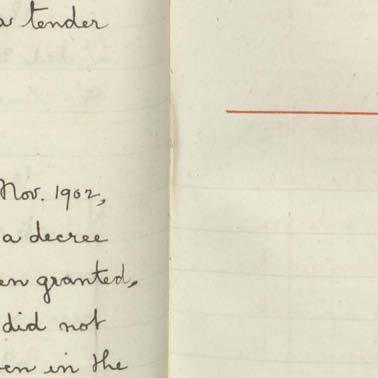 a tender
Nov. 1902,
a decree
en granted,
did not
en in the